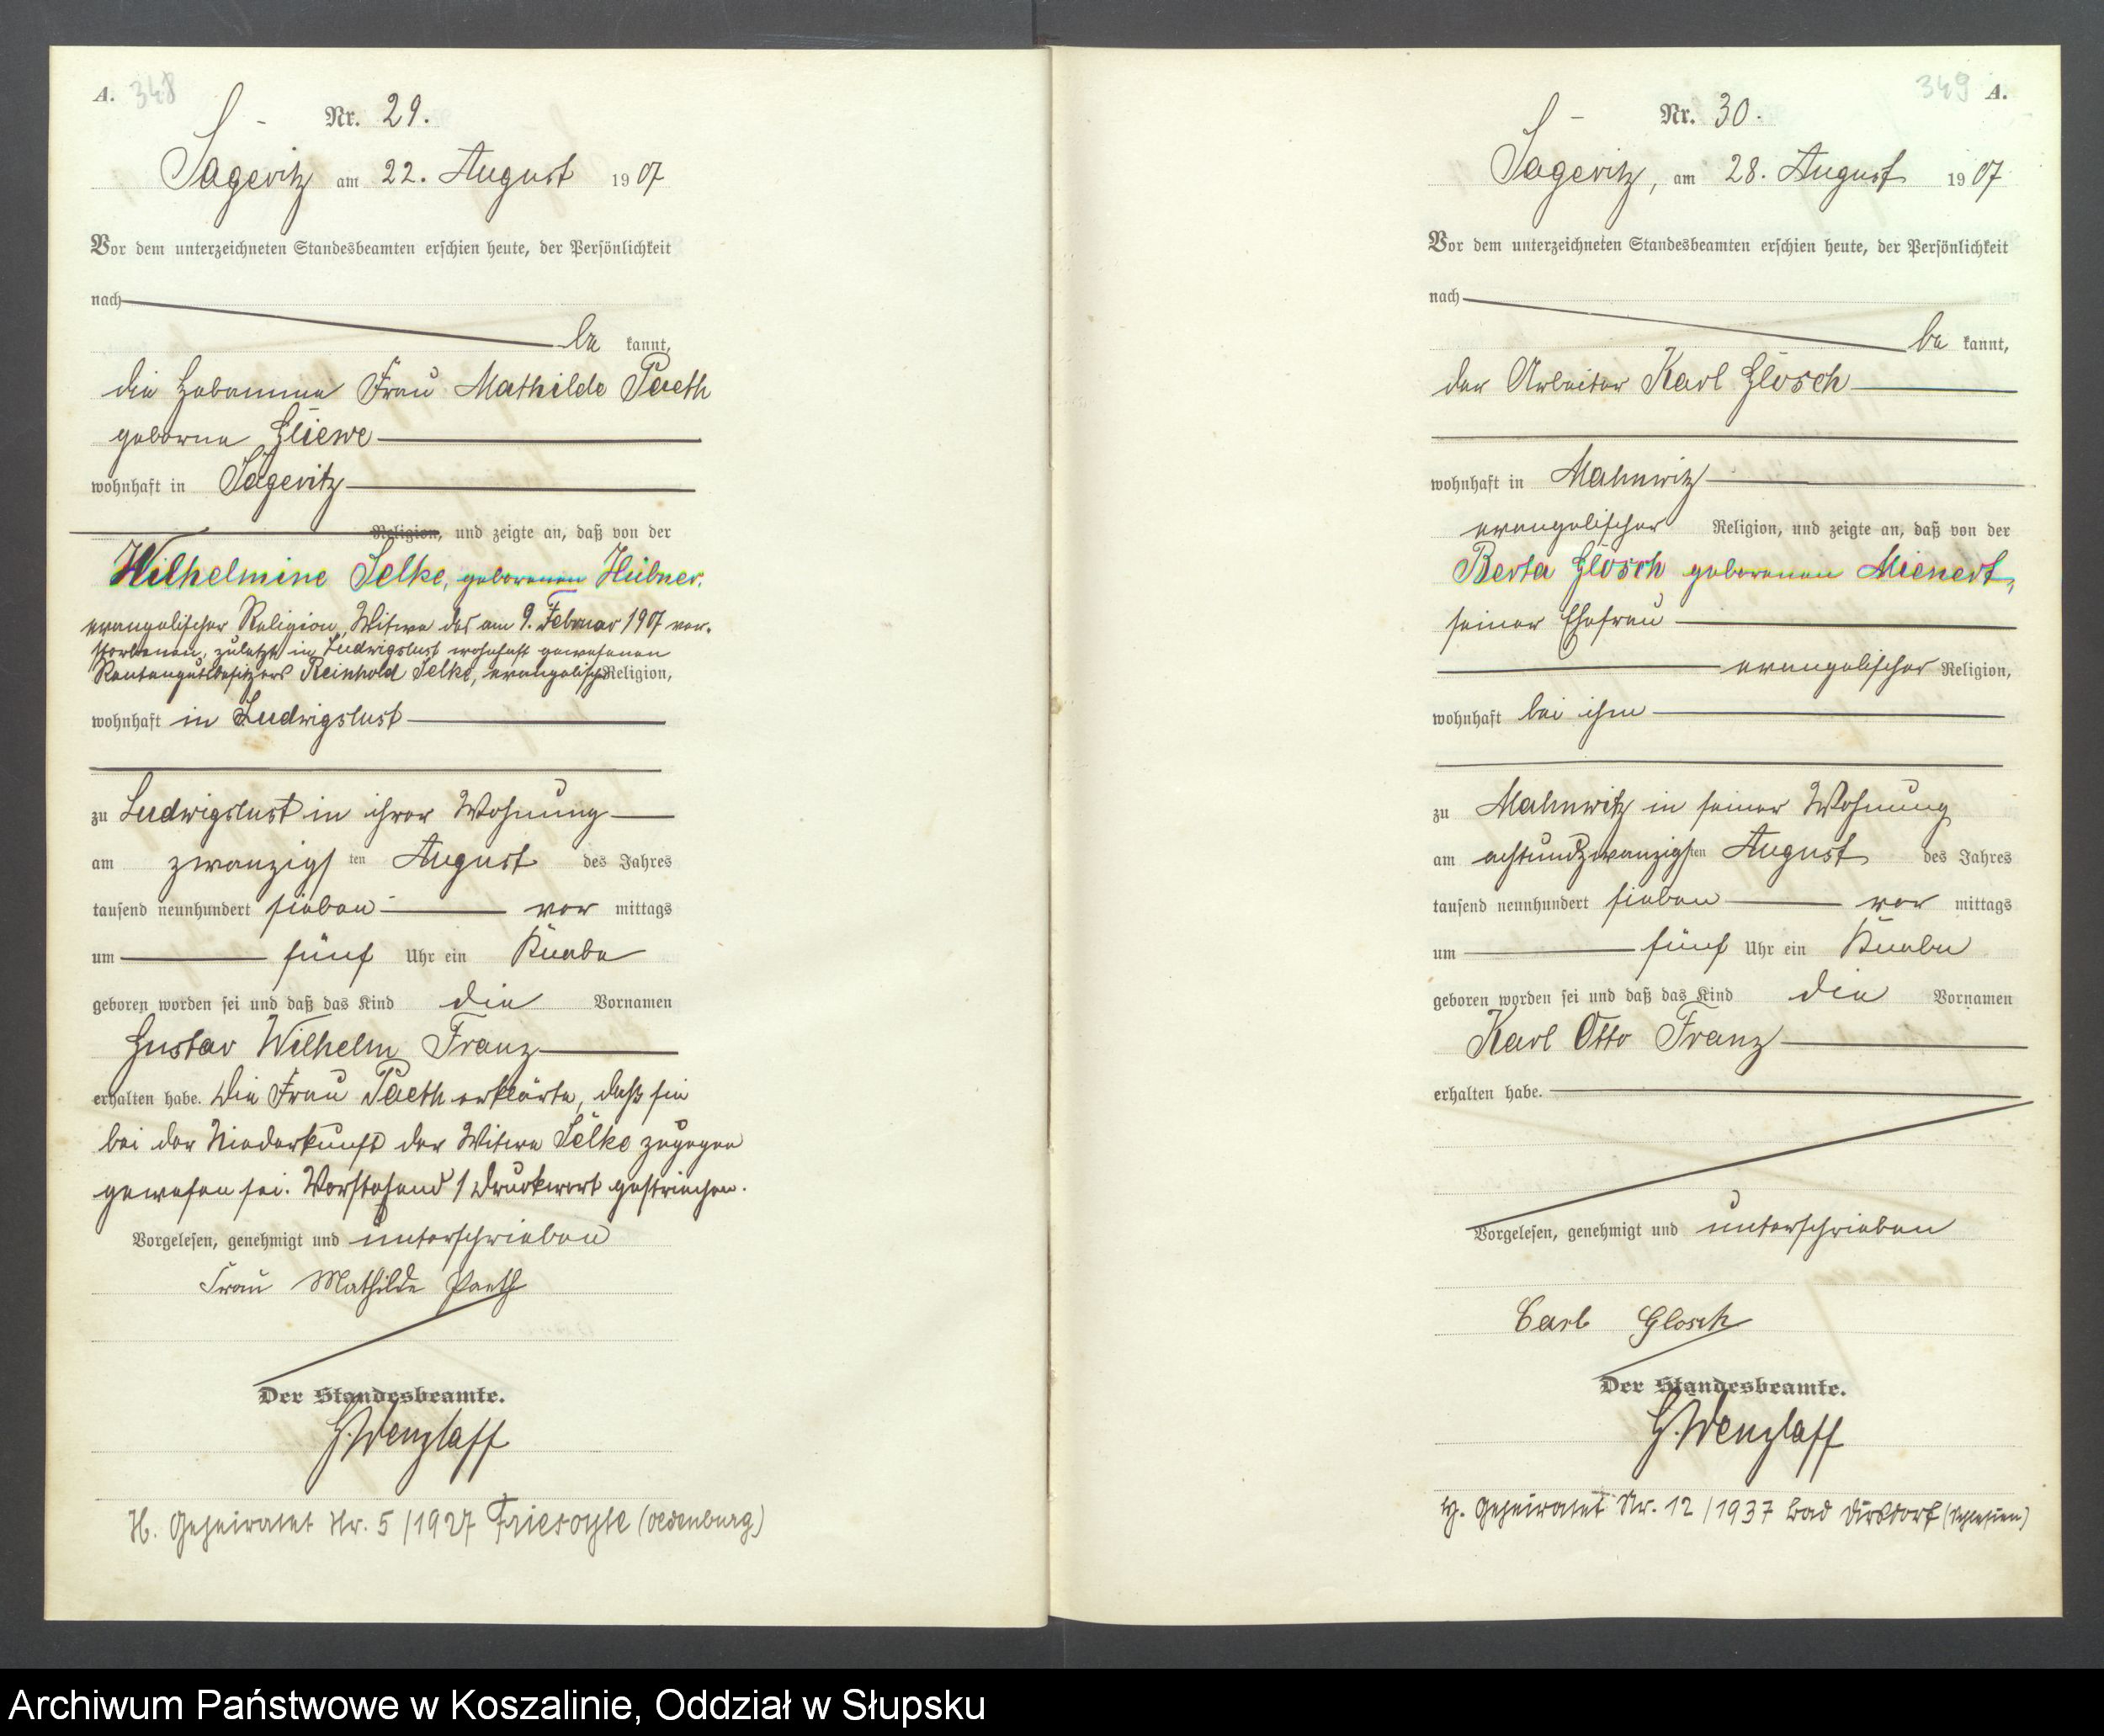 A. 348
Nr. 29.
Sageritz am 22. August 1907
Vor dem unterzeichneten Standesbeamten erschien heute, der Persönlichkeit
nach
be kannt,
die Hebamme Frau Mathilde Paeth
geborne Gliewe
wohnhaft in Sageritz
Religion, und zeigte an, daß von der
Wilhelmine Selke, geborenen Hübner,
evangelischer Religion, Witwe des am 9. Februar 1907 ver-
storbenen, zuletzt in Ludwigslust wohnhaft gewesenen
Rentengutsbesitzers Reinhold Selke, evangelischer Religion,
wohnhaft in Ludwigslust
zu Ludwigslust in ihrer Wohnung
am zwanzigsten August des Jahres
tausend neunhundert sieben vor mittags
um fünf Uhr ein Knabe
geboren worden sei und daß das Kind die Vornamen
Gustav Wilhelm Franz
erhalten habe. Die Frau Paeth erklärte, daß sie
bei der Niederkunft der Witwe Selke zugegen
gewesen sei. Vorstehend 1 Druckwort gestrichen.
Vorgelesen, genehmigt und unterschrieben
Frau Mathilde Paeth
Der Standesbeamte.
G. Wenzlaff
H. Geheiratet Nr. 5/1927 Friesoyte (Oldenburg)
349 A.
Nr. 30.
Sageritz, am 28. August 1907
Vor dem unterzeichneten Standesbeamten erschien heute, der Persönlichkeit
nach
be kannt,
der Arbeiter Karl Glosch
wohnhaft in Mahnwitz
evangelischer Religion, und zeigte an, daß von der
Berta Glosch geborenen Mienert,
seiner Ehefrau
evangelischer Religion,
wohnhaft bei ihm
zu Mahnwitz in seiner Wohnung
am achtundzwanzigsten August des Jahres
tausend neunhundert sieben vor mittags
um fünf Uhr ein Knabe
geboren worden sei und daß das Kind die Vornamen
Karl Otto Franz
erhalten habe.
Vorgelesen, genehmigt und unterschrieben
Carl Glosch
Der Standesbeamte.
G. Wenzlaff
H. Geheiratet Nr. 12/1937 Bad Dirsdorf (Schlesien)
Archiwum Państwowe w Koszalinie, Oddział w Słupsku